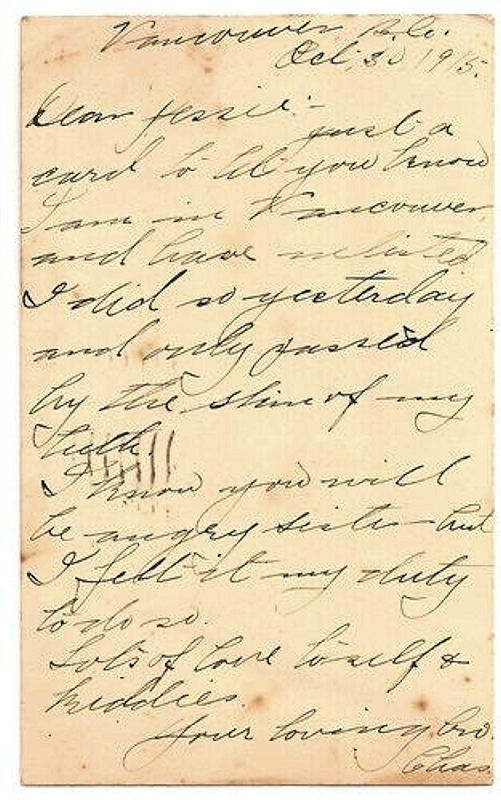 Vancouver B.C.
Oct. 30 1915.
Dear Jessie:-
just a
card to let you know
I am in Vancouver
and have inlisted
I did so yesterday
and only passed
by the skin of my
teeth.
I know you will
be angry sister but
I felt it my duty
to do so.
Lots of love to self &
kiddies.
Your loving bro.
Chas